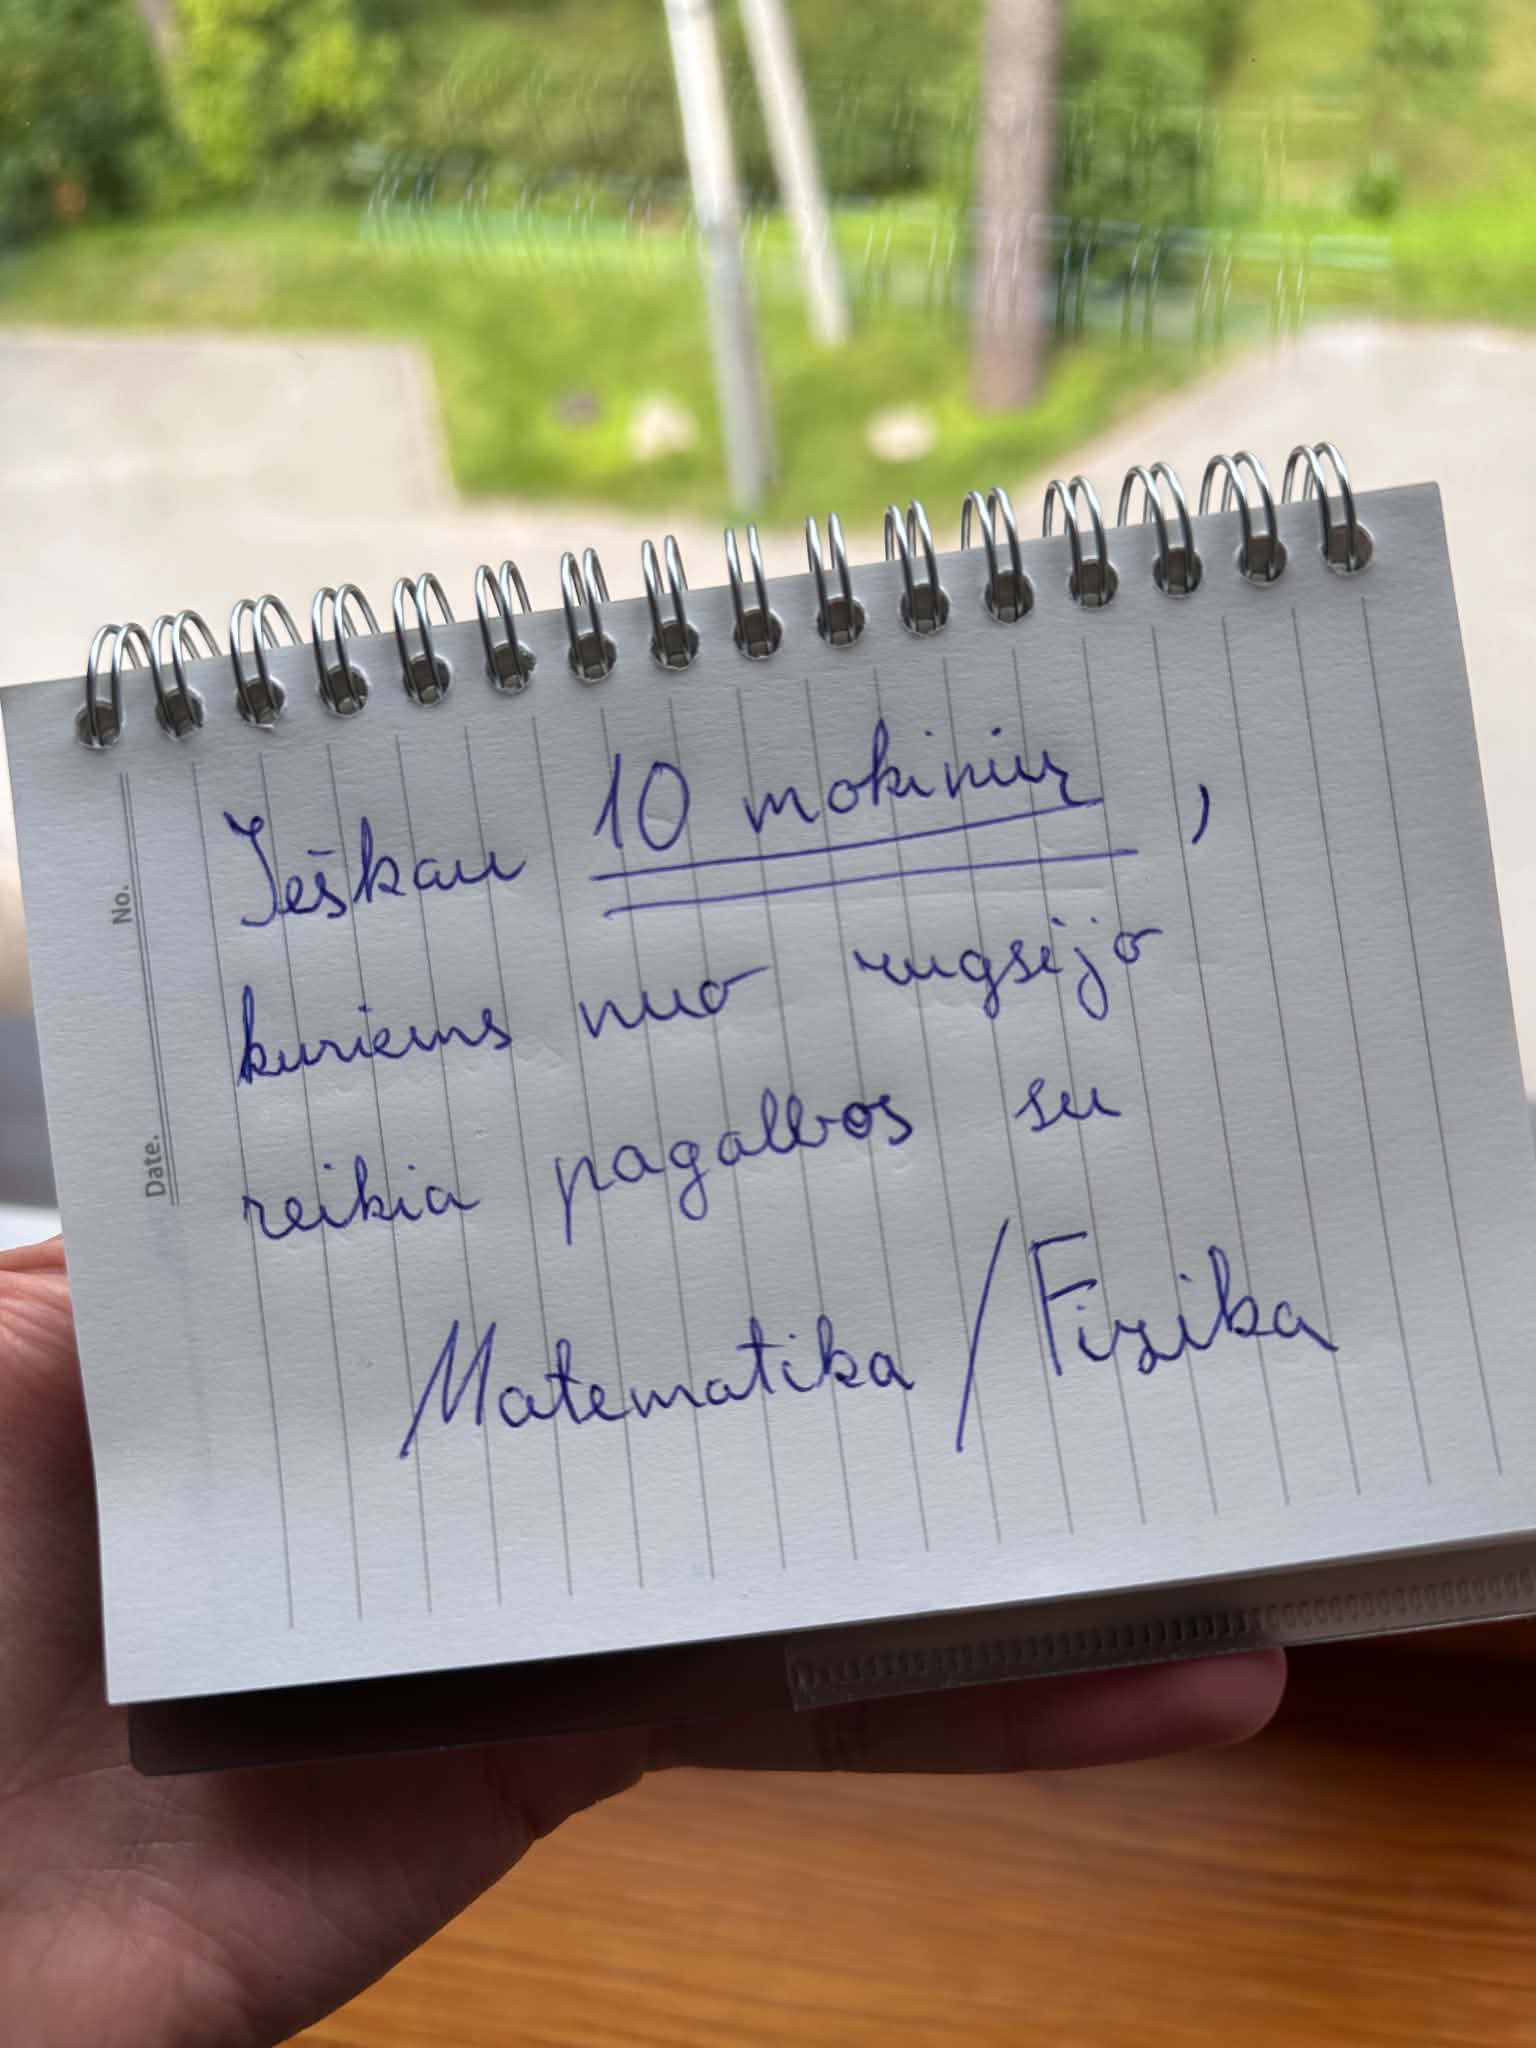 Ieškau 10 mokinių,
kuriems nuo rugsėjo
reikia pagalbos su
Matematika/Fizika
No.
Date.